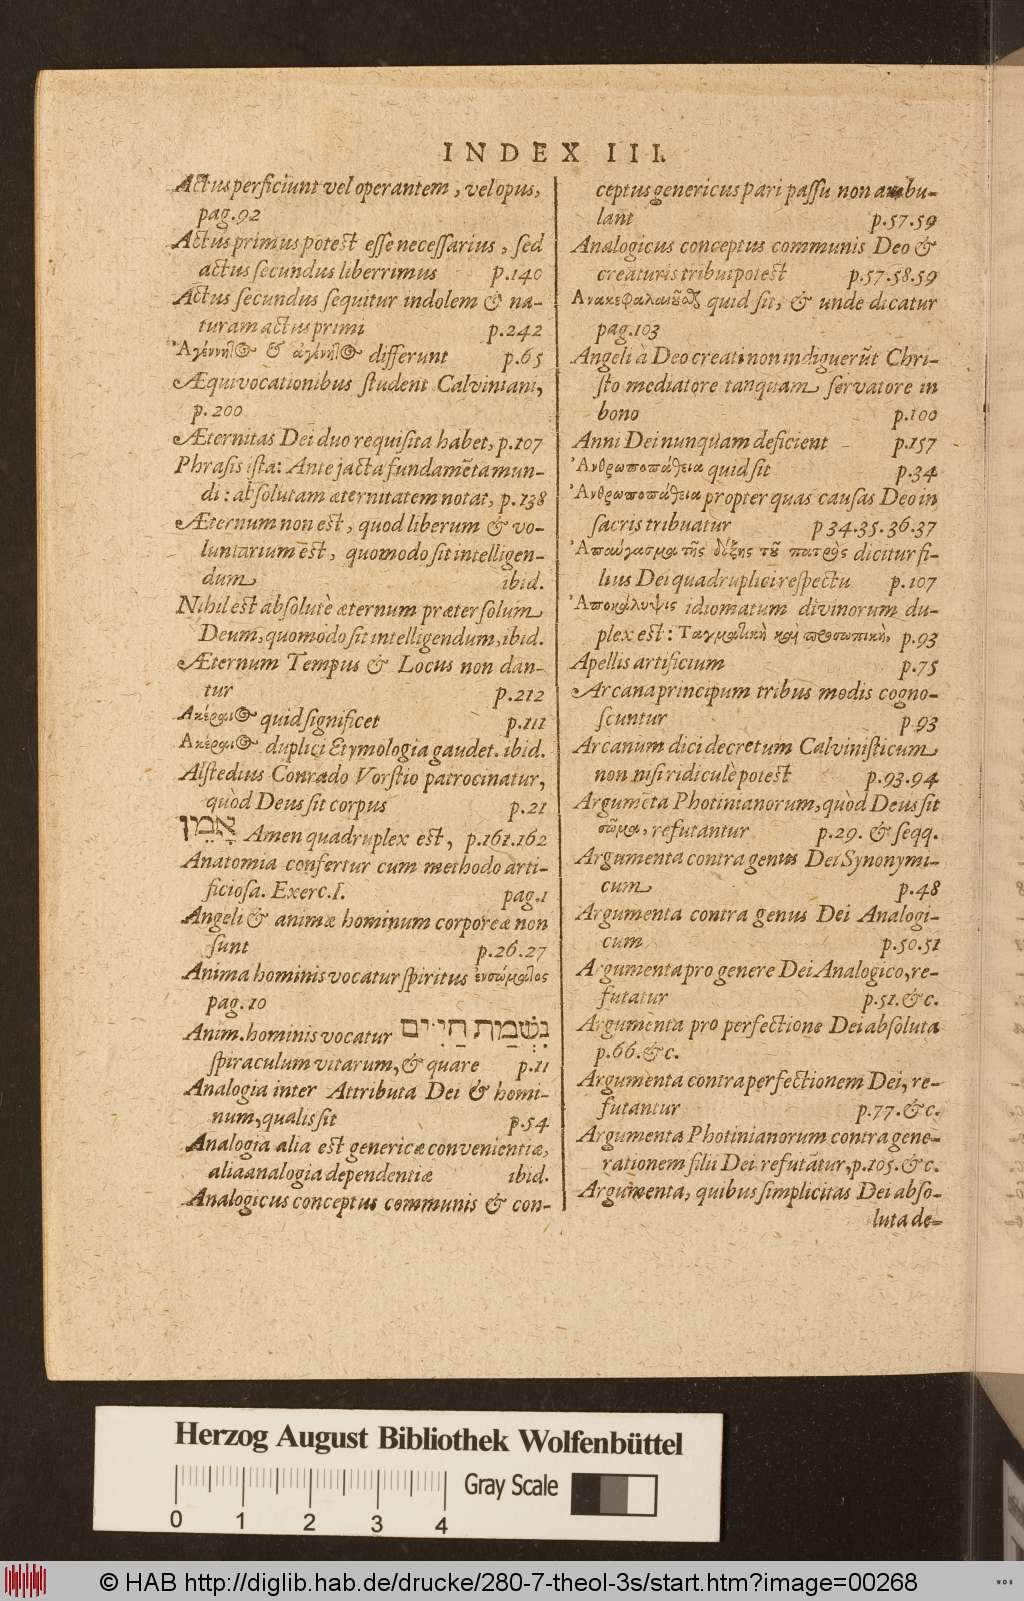 INDEX III.
Actus perficiunt vel operantem, vel opus,
pag. 92
Actus primus potest esse necessarius, sed
actus secundus liberrimus p. 140
Actus secundus sequitur indolem & na-
turam actus primi p. 242
Ἀγέννητος & ἀγένητος differunt p. 65
Æquivocationibus student Calviniani,
p. 200
Æternitas Dei duo requisita habet, p. 107
Phrasis ista: Ante jacta fundamẽta mun-
di: absolutam æternitatem notat, p. 138
Æternum non est, quod liberum & vo-
luntarium est, quomodo sit intelligen-
dum ibid.
Nihil est absolutè æternum præter solum
Deum, quomodo sit intelligendum, ibid.
Æternum Tempus & Locus non dan-
tur p. 212
Ἀκέραιος quid significet p. 111
Ἀκέραιος duplici Etymologia gaudet. ibid.
Alstedius Conrado Vorstio patrocinatur,
quòd Deus sit corpus p. 21
אָמֵן Amen quadruplex est, p. 161. 162
Anatomia confertur cum methodo arti-
ficiosa. Exerc. I. pag. 1
Angeli & animæ hominum corporeæ non
sunt p. 26. 27
Anima hominis vocatur spiritus ἐνσώματος
pag. 10
Anim. hominis vocatur נִשְׁמַת חַיִּים
spiraculum vitarum, & quare p. 11
Analogia inter Attributa Dei & homi-
num, qualis sit p. 54
Analogia alia est genericæ convenientiæ,
alia analogia dependentiæ ibid.
Analogicus conceptus communis & con-
ceptus genericus pari passu non ambu-
lant p. 57. 59
Analogicus conceptus communis Deo &
creaturis tribui potest p. 57. 58. 59
Ἀνακεφαλαιοῦσθαι quid sit, & unde dicatur
pag. 103
Angeli à Deo creati non indiguerũt Chri-
sto mediatore tanquam servatore in
bono p. 100
Anni Dei nunquam deficient p. 157
Ἀνθρωποπάθεια quid sit p. 34
Ἀνθρωποπάθεια propter quas causas Deo in
sacris tribuatur p 34. 35. 36. 37
Ἀπαύγασμα τῆς δόξης τοῦ πατρὸς dicitur fi-
lius Dei quadruplici respectu p. 107
Ἀποκάλυψις idiomatum divinorum du-
plex est: Ταγματικὴ καὶ προσωπικὴ, p. 93
Apellis artificium p. 75
Arcana principum tribus modis cogno-
scuntur p 93
Arcanum dici decretum Calvinisticum
non nisi ridiculè potest p. 93. 94
Argumẽta Photinianorum, quòd Deus sit
σῶμα, refutantur p. 29. & seqq.
Argumenta contra genus Dei Synonymi-
cum p. 48
Argumenta contra genus Dei Analogi-
cum p. 50. 51
Argumenta pro genere Dei Analogico, re-
futatur p. 51. &c.
Argumenta pro perfectione Dei absoluta
p. 66. &c.
Argumenta contra perfectionem Dei, re-
futantur p. 77. &c.
Argumenta Photinianorum contra gene-
rationem filii Dei refutãtur, p. 105. &c.
Argumenta, quibus simplicitas Dei abso-
luta de-
Herzog August Bibliothek Wolfenbüttel
Gray Scale
0 1 2 3 4
© HAB http://diglib.hab.de/drucke/280-7-theol-3s/start.htm?image=00268